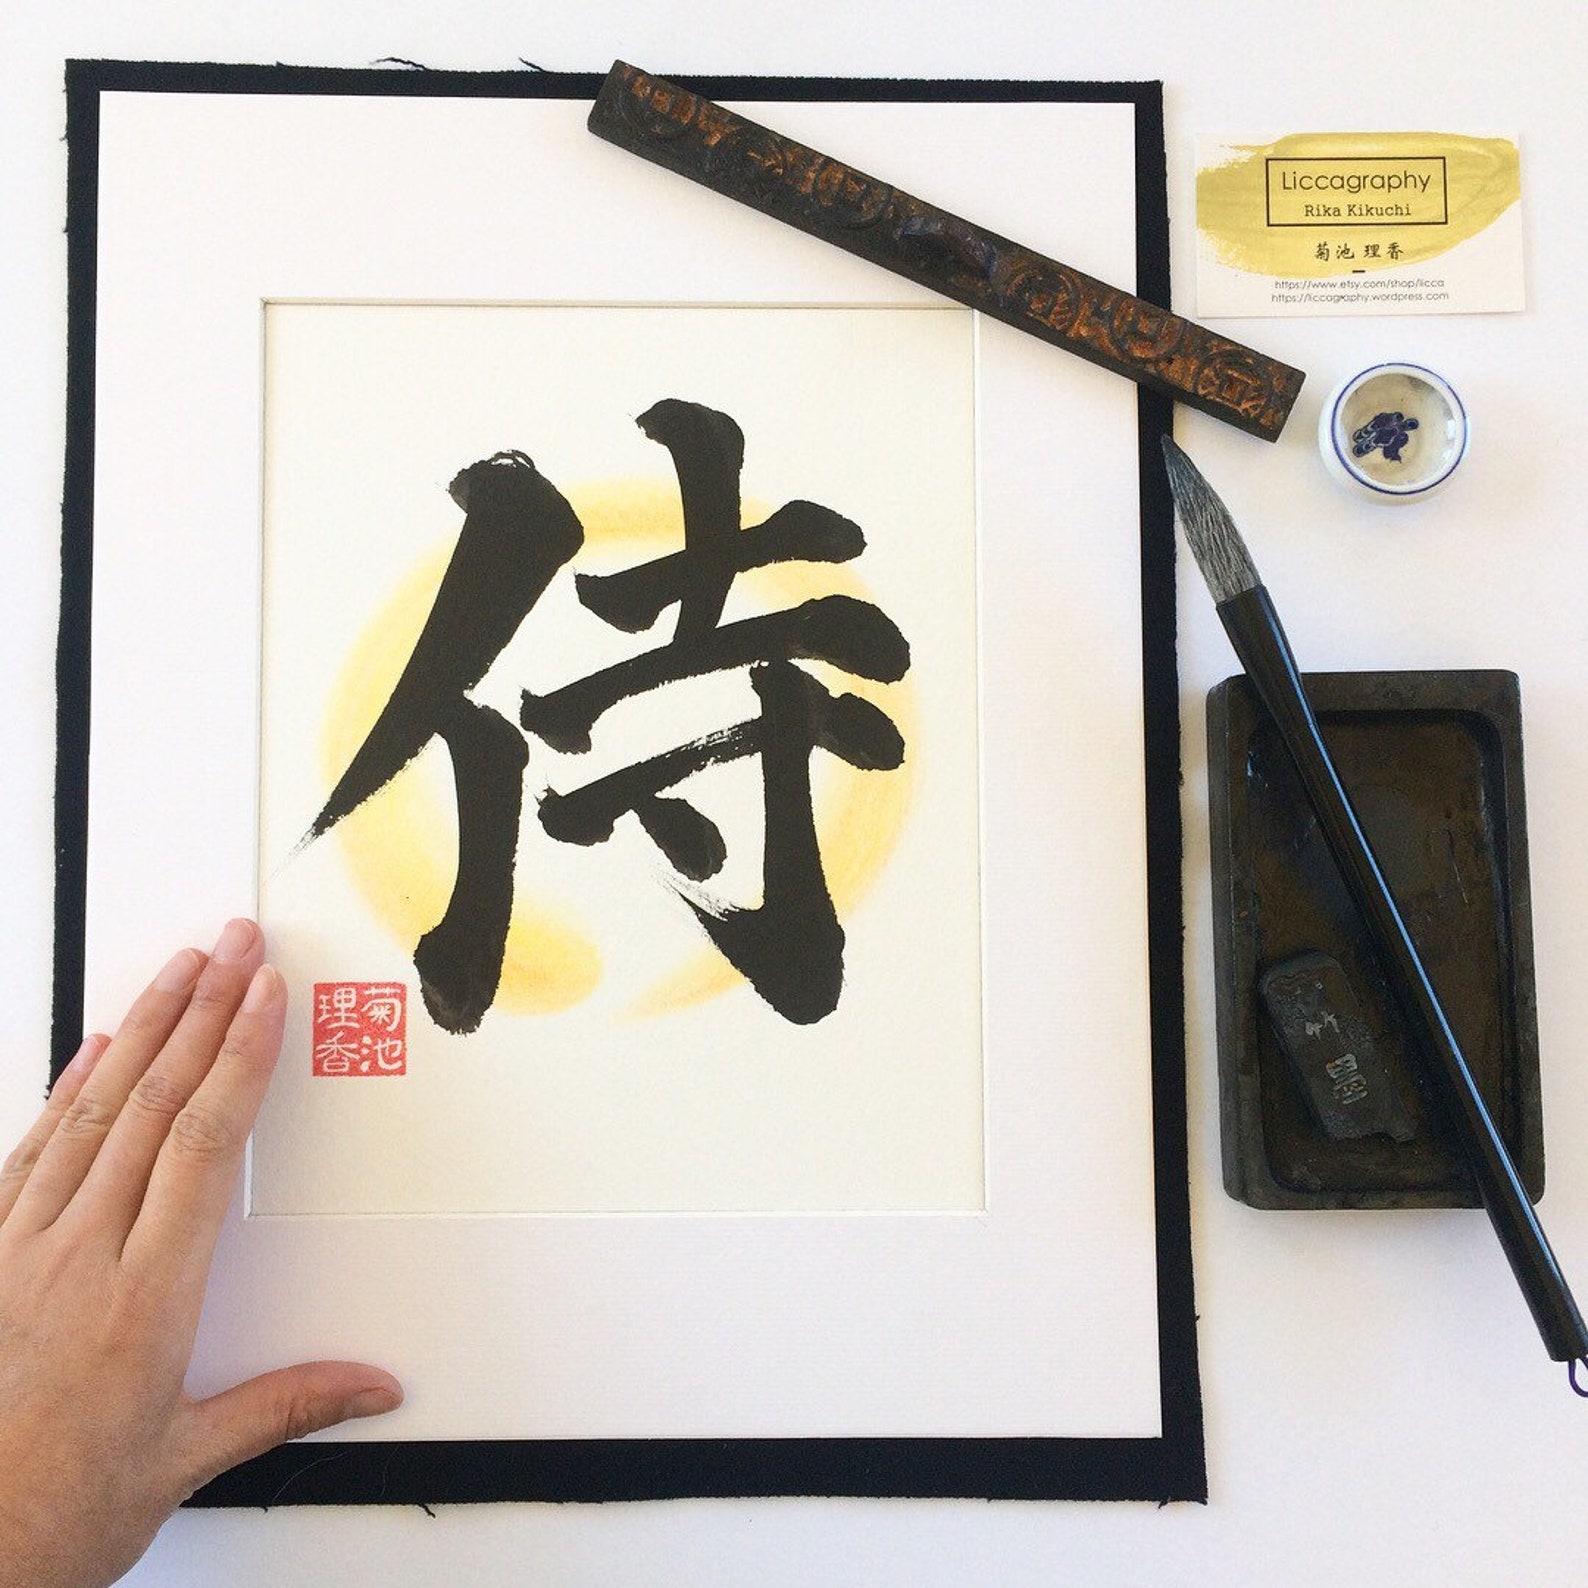 侍
菊池
理香
Liccagraphy
Rika Kikuchi
菊池 理香
https://www.etsy.com/shop/licca
https://liccagraphy.wordpress.com